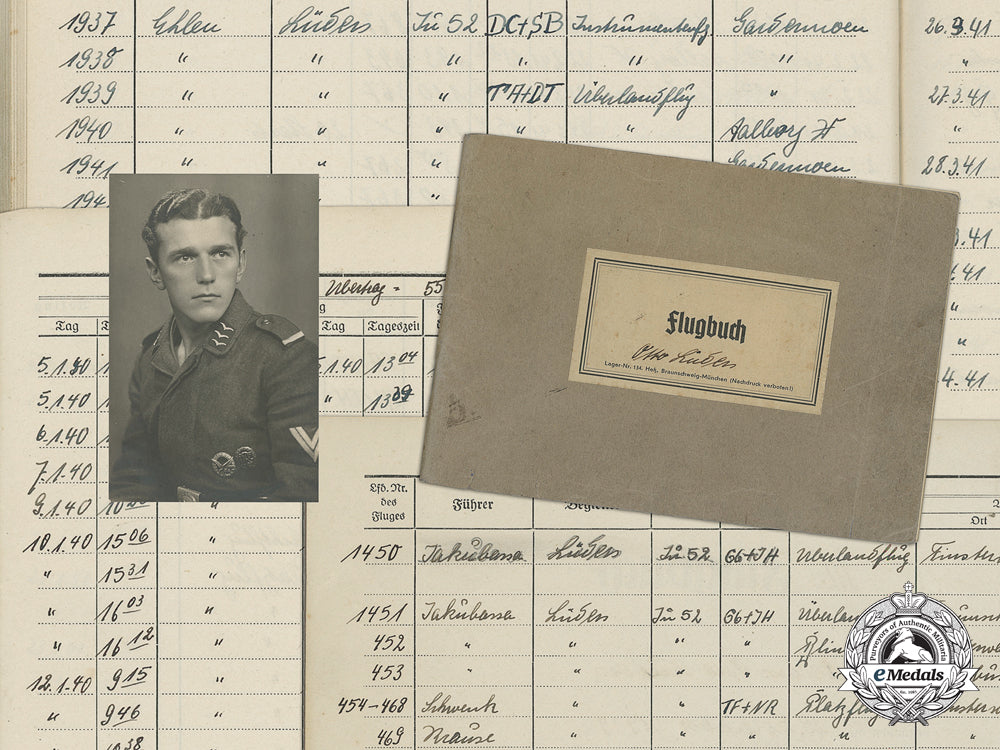 1937 Ehlen Lüders Ju 52 DC+SB Instrumentenfg. Gardermoen 26.3.41
1938 " " " " " " "
1939 TA+DT Überlandflug " 27.3.41
1940 " " " " " Aalborg "
1941 " " Gardermoen 28.3.41
194
3.41
.41
"
"
4.41
Übertrag = 55
Tag Tag Tageszeit
5.1.40 1.40 13 04
5.1.40 " 13 39
6.1.40
7.1.40
9.1.40 "
10.1.40 15 06 "
" 15 31 "
" 16 03 "
" 16 12 "
12.1.40 9 15 "
" 9 46 "
38
Flugbuch
Otto Lüders
Lager-Nr. 134. Heß, Braunschweig-München (Nachdruck verboten!)
Lfd. Nr.
des
Fluges Führer Ort
1450 Jakubassa Lüders Ju 52 G6+JH Überlandflug Finster
1451 Jakubassa Lüders Ju 52 G6+JH Überla
452 " " " "
453 " " " "
454-468 Schwenk " " TF+NR Platzflug
469 Krause " " " "
Purveyors of Authentic Militaria
eMedals